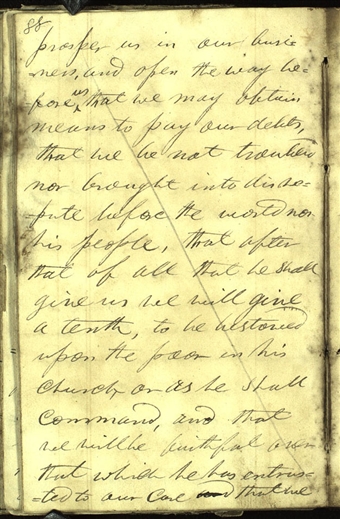 88
prosper us in our busi-
-ness, and open the way be-
-fore us, that we may obtain
means to pay our debts,
that we be not troubled
nor brought into disre-
-pute before the world nor
his people, that after
that of all that he shall
give us we will give
a tenth, to be bestowed
upon the poor in his
Church or as he shall
Command, and that
we will be faithful over
that which he has entrus-
-ted to our Care and that we